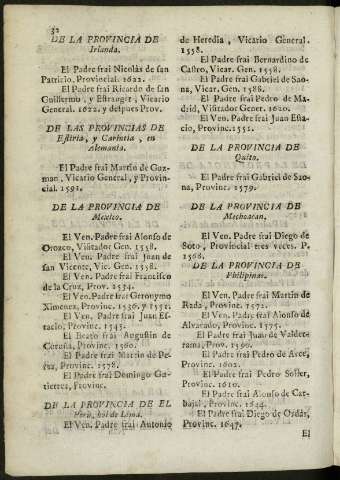 32
DE LA PROVINCIA DE
Irlanda.
El Padre frai Nicolàs de san
Patricio, Provincial. 1622.
El Padre frai Ricardo de san
Guillermo, y Estranger, Vicario
General. 1622. y despues Prov.
DE LAS PROVINCIAS DE
Estiria, y Carintia, en
Alemania.
El Padre frai Martin de Guz-
man, Vicario General, y Provin-
cial. 1592.
DE LA PROVINCIA DE
Mexico.
El Ven. Padre frai Alonso de
Orozco, Visitador Gen. 1558.
El Ven. Padre frai Juan de
san Vicente, Vic. Gen. 1558.
El Ven. Padre frai Francisco
de la Cruz, Prov. 1534.
El Ven. Padre frai Geronymo
Ximenez, Provinc. 1536. y 1551.
El Ven. Padre frai Juan Es-
tacio, Provinc. 1545.
El Beato frai Augustin de
Coruña, Provinc. 1560.
El Padre frai Martin de Pe-
rea, Provinc. 1578.
El Padre frai Domingo Gu-
tierrez, Provinc.
DE LA PROVINCIA DE EL
Perù, hoi de Lima.
El Ven. Padre frai Antonio
de Heredia, Vicario General.
1558.
El Padre frai Bernardino de
Castro, Vicar. Gen. 1558.
El Padre frai Gabriel de Sao-
na, Vicar. Gen. 1586.
El Padre frai Pedro de Ma-
drid, Visitador Gener. 1620.
El Ven. Padre frai Juan Esta-
cio, Provinc. 1551.
DE LA PROVINCIA DE
Quito.
El Padre frai Gabriel de Sao-
na, Provinc. 1579.
DE LA PROVINCIA DE
Mechoacan.
El Ven. Padre frai Diego de
Soto, Provincial tres veces. P.
1608.
DE LA PROVINCIA DE
Phillipinas.
El Ven. Padre frai Martin de
Rada, Provinc. 1572.
El Ven. Padre frai Alonso de
Alvarado, Provinc. 1575.
El Padre frai Juan de Valder-
rama, Prov. 1590.
El Padre frai Pedro de Arce,
Provinc. 1602.
El Padre frai Pedro Solier,
Provinc. 1610.
El Padre frai Alonso de Car-
bajal, Provinc. 1644.
El Padre frai Diego de Ordàz,
Provinc. 1647.
El